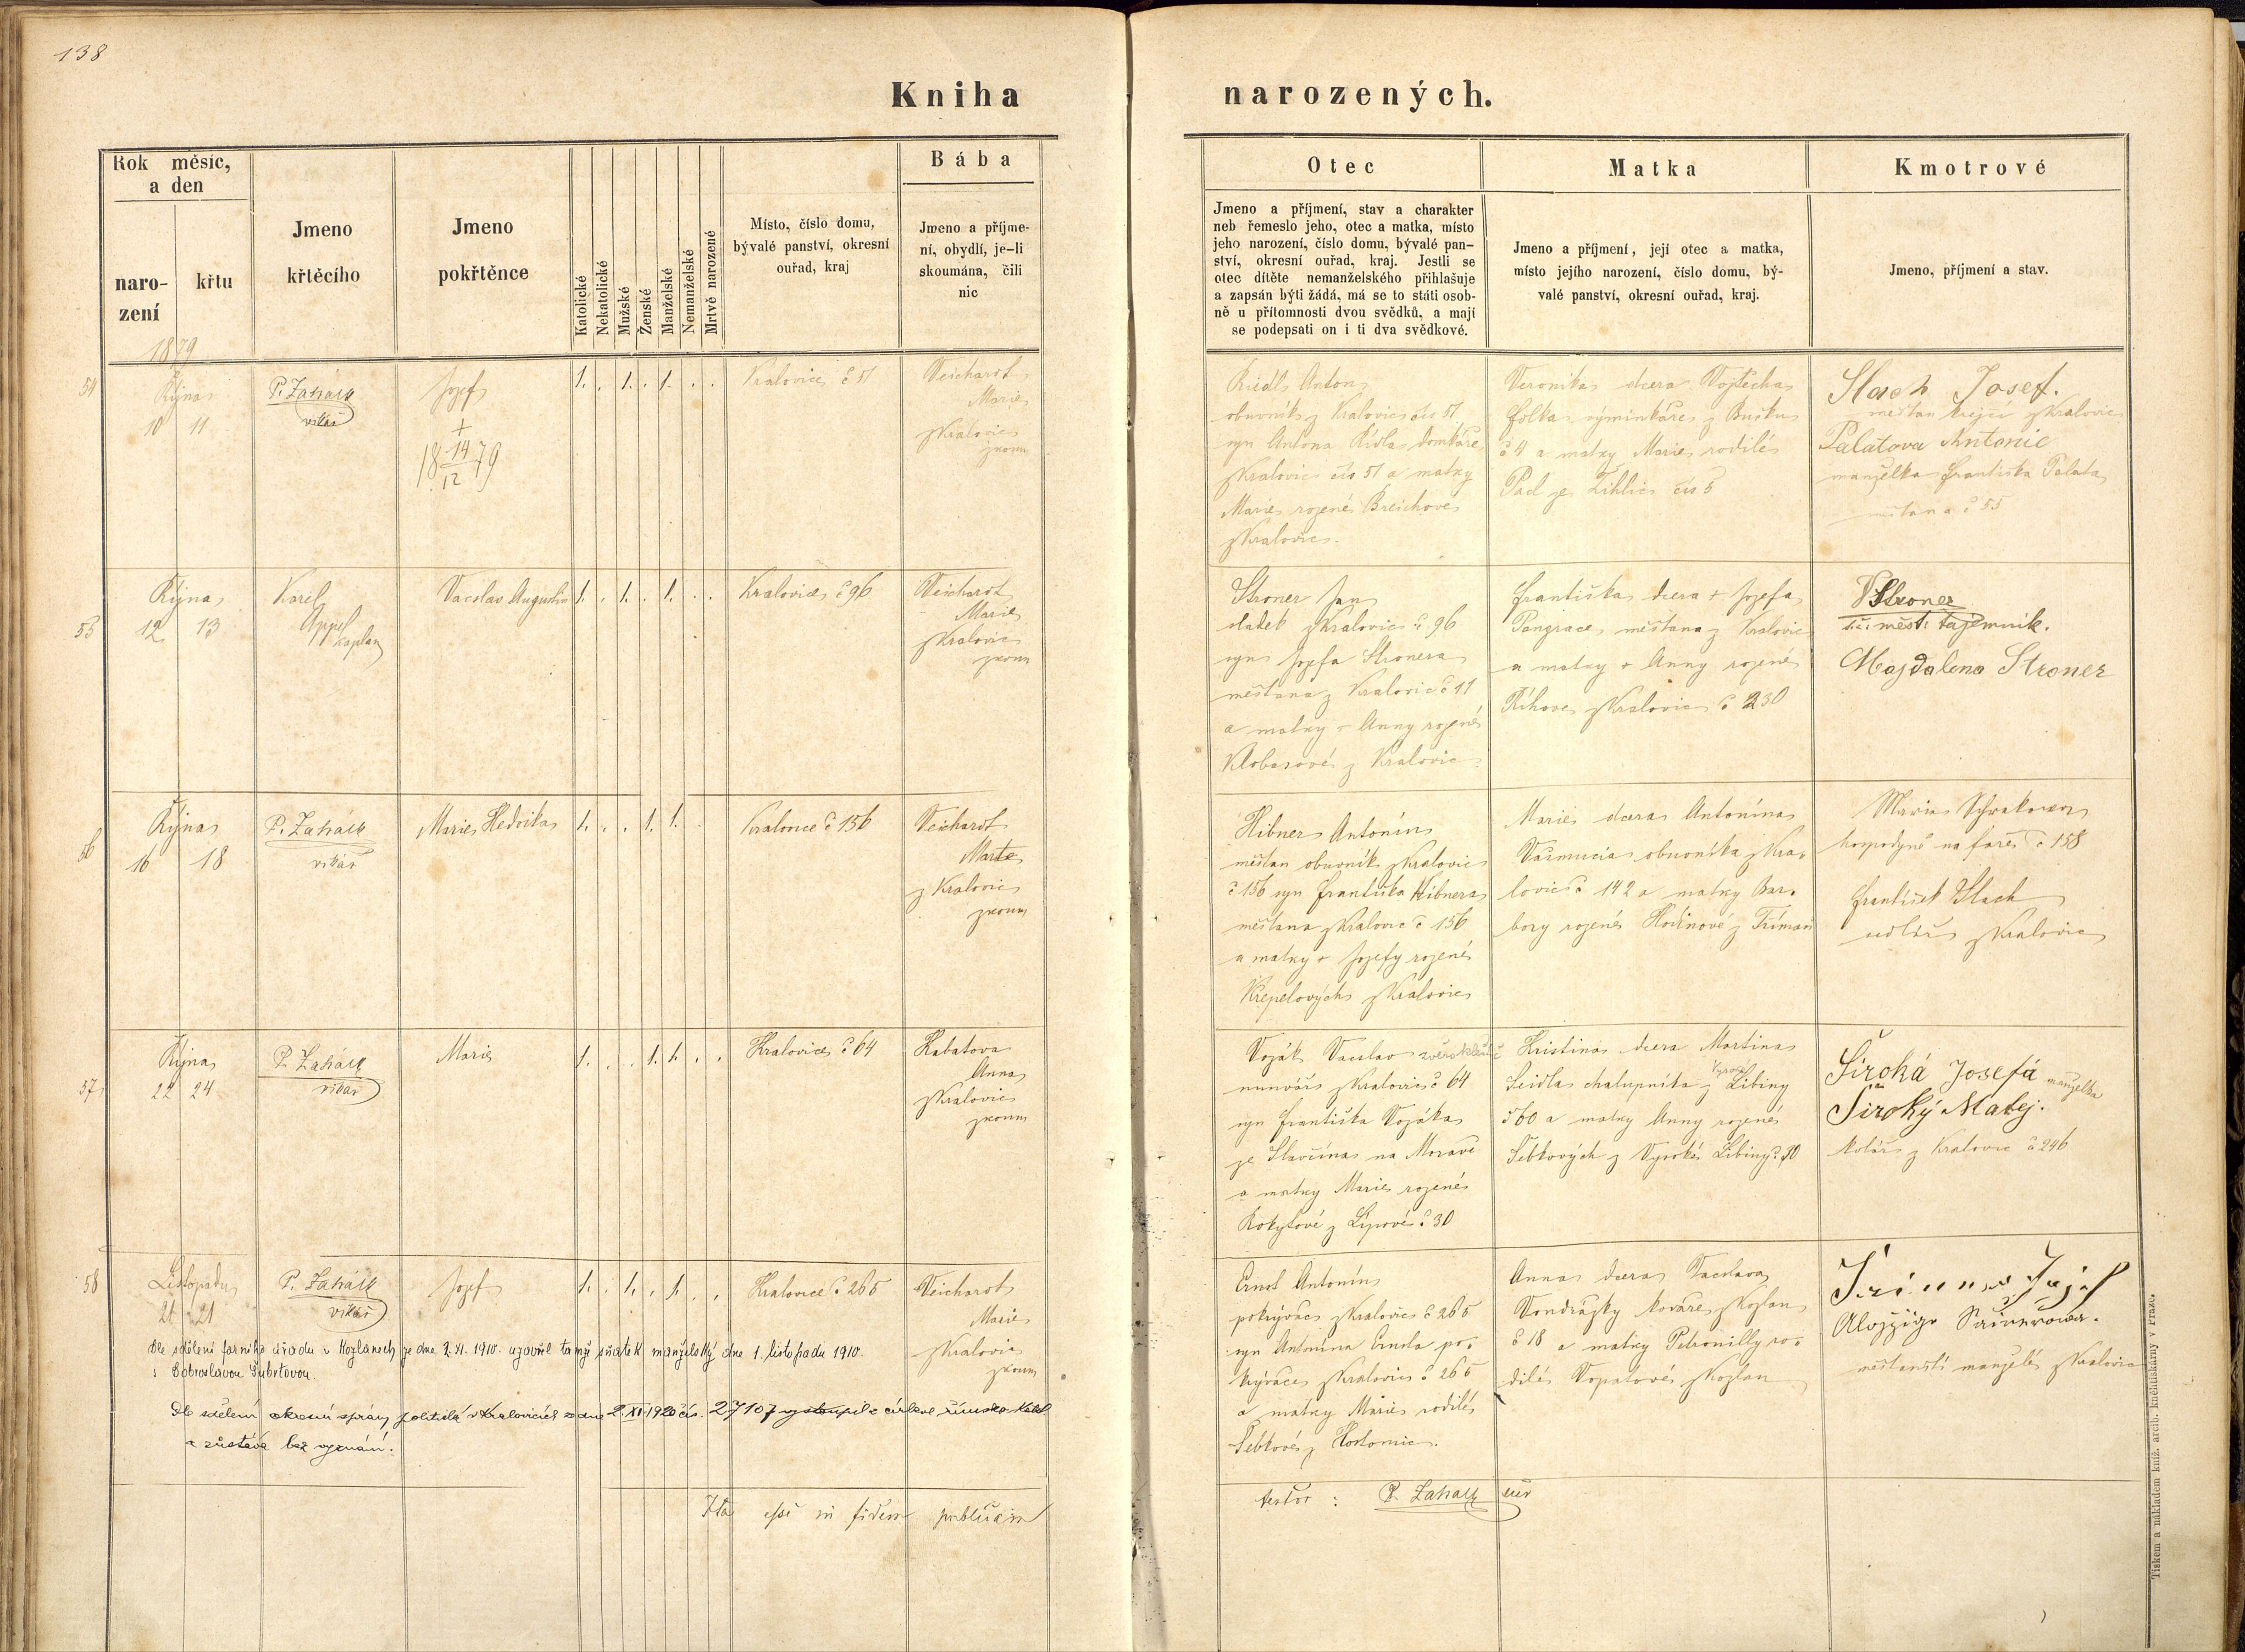 138
Kniha narozených.
Rok měsíc,
a den
naro-
zení
křtu
Jmeno
křtěcího
Jmeno
pokřtěnce
Katolické
Nekatolické
Mužské
Ženské
Manželské
Nemanželské
Mrtvě narozené
Místo, číslo domu,
bývalé panství, okresní
ouřad, kraj
Bába
Jmeno a příjme-
ní, obydlí, je-li
skoumána, čili
nic
Otec
Jmeno a příjmení, stav a charakter
neb řemeslo jeho, otec a matka, místo
jeho narození, číslo domu, bývalé pan-
ství, okresní ouřad, kraj. Jestli se
otec dítěte nemanželského přihlašuje
a zapsán býti žádá, má se to státi osob-
ně u přítomnosti dvou svědků, a mají
se podepsati on i ti dva svědkové.
Matka
Jmeno a příjmení, její otec a matka,
místo jejího narození, číslo domu, bý-
valé panství, okresní ouřad, kraj.
Kmotrové
Jmeno, příjmení a stav.
1879
54
Října
10 11
P. Zahálk
vikář
Josef
+
18 14/12 79
1. . 1. . 1. . .
Kralovice č 51
Veichardt
Marie
z Kralovic
zkoum
Riedl Anton
obuvník z Kralovic čís 51
syn Antona Rídla domkáře
z Kralovic čís 51 a matky
Marie rozené Breichové
z Kralovic.
Veronika dcera Vojtěcha
Folka výminkáře z Bučku
č 4 a matky Marie rodilé
Pad ze Žihlic čís 5
Slach Josef.
měšťan krejčí z Kralovic
Palatova Antonie
manželka Františka Palata
měšťana č 55
55
Října
12 13
Karel
Appel
kaplan
Vacslav Augustin
1. . 1. . 1. . .
Kralovice č 96
Veichardt
Marie
z Kralovic
zkoum
Stroner Jan
sládek z Kralovic č 96
syn Josefa Stronera
měšťana z Kralovic č 11
a matky + Anny rozené
Klobasové z Kralovic.
Františka dcera + Josefa
Pangrace měšťana z Kralovic
a matky + Anny rozené
Říhové z Kralovic č 230
V Stroner
měst. tajemník.
Majdalena Stroner
56
Října
16 18
P. Zahálk
vikář
Marie Hedvika
1. . . 1. 1. .
Kralovice č 156
Veichardt
Marie
z Kralovic
zkoum
Hibner Antonín
měšťan obuvník z Kralovic
č 156 syn Františka Hibnera
měšťana z Kralovic č 156
a matky + Josefy rozené
Křepelových z Kralovic
Marie dcera Antonína
Vašmucia obuvníka z Kra-
lovic č 142 a matky Bar-
bory rozené Hodinové z Tříman
Marie
hospodyně na faře č 158
František Slach
sedlář z Kralovic
57
Října
22 24
P. Zahálk
vikář
Marie
1. . . 1. 1. . .
Kralovice č 64
Kabatova
Anna
z Kralovic
zkoum
Voják Vacslav zvěrokleštič
nunvář z Kralovic č 64
syn Františka Vojáka
ze Slavičína na Moravě
a matky Marie rozené
Rokytové z Lipové č 30
Kristina dcera Martina
Seidla chalupníka z Vysoké Libiny
č 60 a matky Anny rozené
Šebkových z Vysoké Libiny č 30
Široká Josefá manželka
Široký Matěj.
kolář z Kralovic č 246
58
Listopadu
21 21
P. Zahálk
vikář
Josef
1. . 1. . 1. . .
Kralovice č 265
Veichardt
Marie
z Kralovic
zkoum
Ernst Antonín
pokrývač z Kralovic č 265
syn Antonína Ernsta po-
krývače z Kralovic č 265
a matky Marie rodilé
Šebkové z Hostomic.
Anna dcera Vacslava
Vondrážky kováře z Kožlan
č 18 a matky Petronilly ro-
dilé Vopatové z Kožlan
Šrainer Josef
Aloizije Šrainerowa.
měšťanští manželé z Kralovic
Dle sdělení farního úřadu v Kozlanech ze dne 2. XI. 1910. uzavřel tamže sňatek manželský dne 1. listopadu 1910.
s Dobroslavou Šubrtovou.
Dle sdělení okresní správy politické v Kralovicích ze dne 2. XI 1920 čís. 27107 vystoupil z církve římsko kat
a zůstává bez vyznání.
Ita esse in fidem publicam
testor: P. Zahalk vikář
Tiskem a nákladem kníž. arcib. knihtiskárny v Praze.